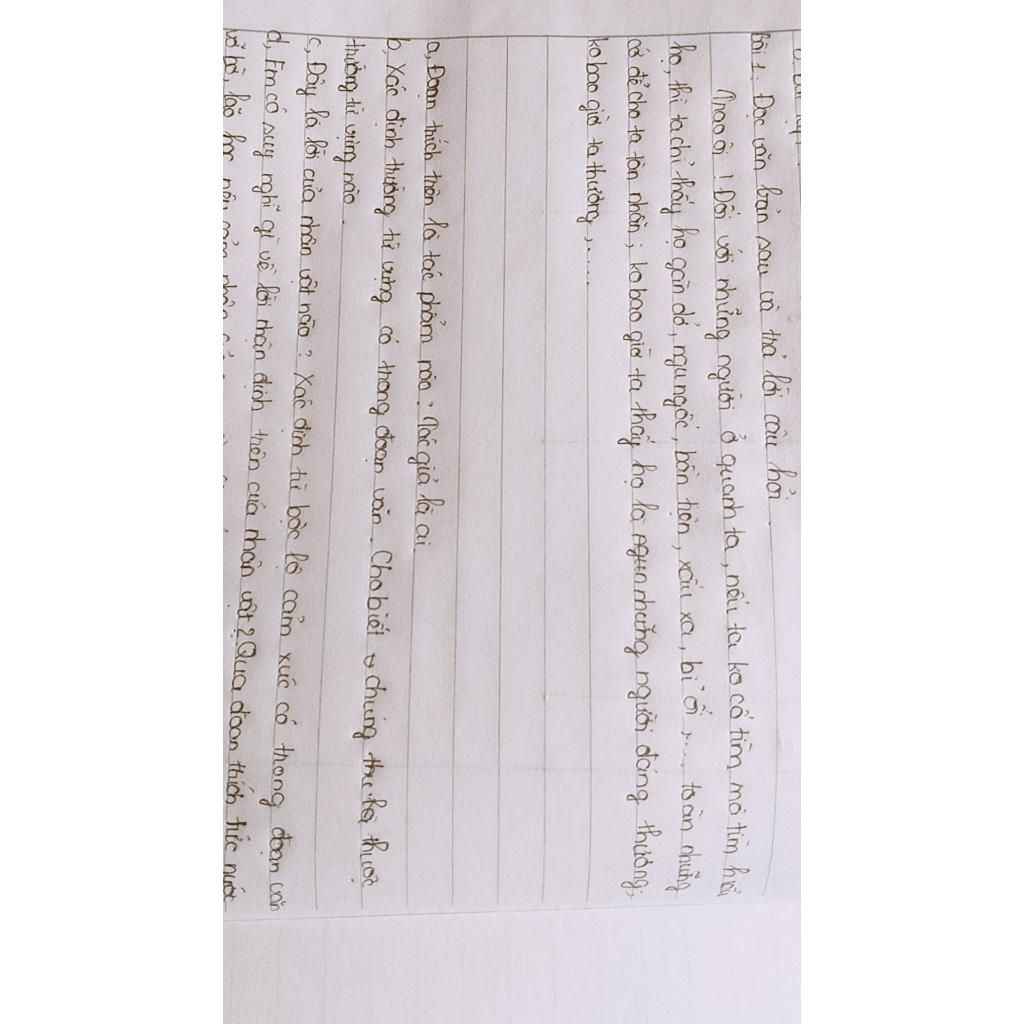 Bài 1. Đọc văn bản sau và trả lời câu hỏi.
Chao ôi! Đối với những người ở quanh ta, nếu ta ko cố tìm mà tìm hiểu
họ, thì ta chỉ thấy họ gàn dở, ngu ngốc, bần tiện, xấu xa, bỉ ổi,.... toàn những
cớ để cho ta tàn nhẫn; ko bao giờ ta thấy họ là những người đáng thương;
ko bao giờ ta thương,.....
a, Đoạn trích trên là tác phẩm nào? Tác giả là ai
b, Xác định trường từ vựng có trong đoạn văn. Cho biết chúng thuộc
trường từ vựng nào.
c, Đây là lời của nhân vật nào? Xác định từ bộc lộ cảm xúc có trong đoạn văn
d, Em có suy nghĩ gì về lời nhận định trên của nhân vật? Qua đoạn trích tức nước
vỡ bờ, lão hạc